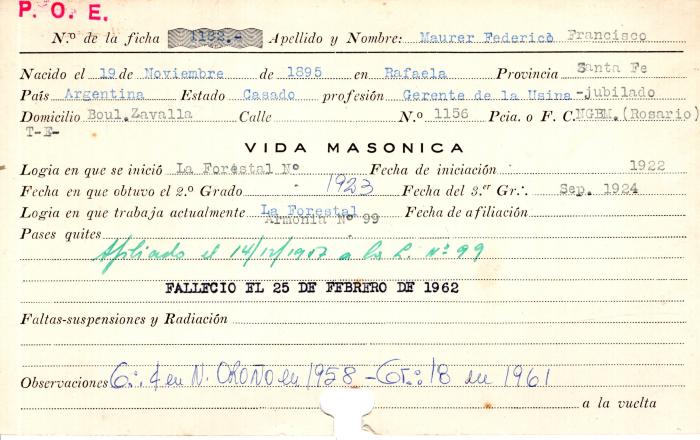 P. O. E.
N.º de la ficha 1182.- Apellido y Nombre: Maurer Federico Francisco
Nacido el 19 de Noviembre de 1895 en Rafaela Provincia Santa Fe
País Argentina Estado Casado profesión Gerente de la Usina-jubilado
Domicilio Boul. Zavalla Calle N.º 1156 Pcia. o F. C. NGBM. (Rosario)
T-E-
VIDA MASONICA
Logia en que se inició La Forestal Nº Fecha de iniciación 1922
Fecha en que obtuvo el 2.º Grado 1923 Fecha del 3.er Gr: Sep. 1924
Logia en que trabaja actualmente La Forestal Fecha de afiliación
Armonia Nº 99
Pases quites
Afiliado el 14/12/1957 a la L. Nº 99
FALLECIO EL 25 DE FEBRERO DE 1962
Faltas-suspensiones y Radiación
Observaciones G∴ 4 en N. OROÑO en 1958 - Gr∴ 18 en 1961
a la vuelta